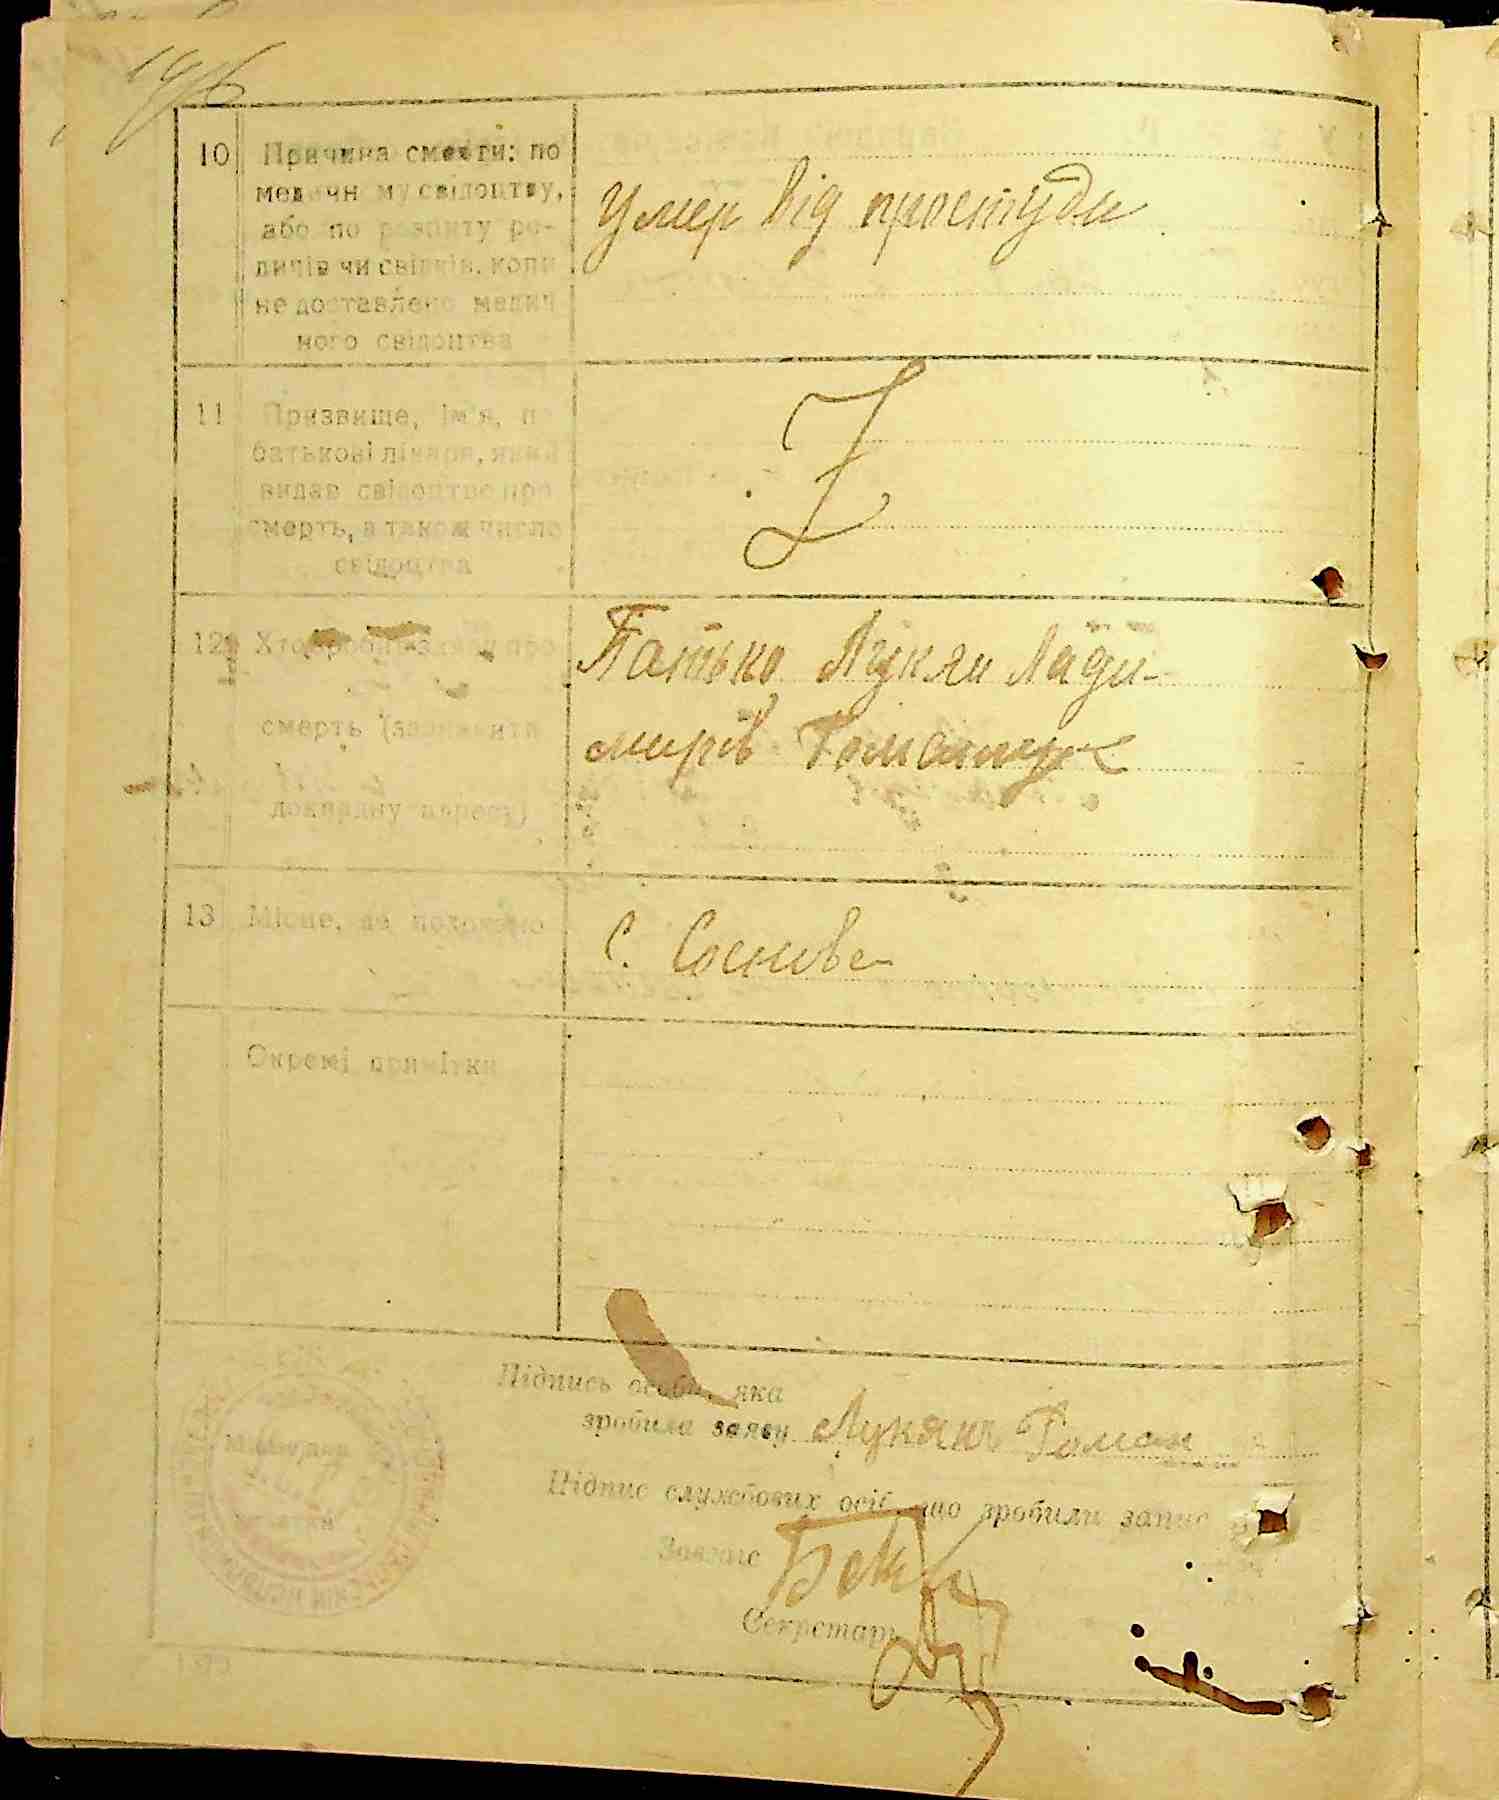 10
Причина смерти: по
медичн му свідоцтву,
або по розпиту ро-
дичів чи свідків, коли
не доставлено медич
ного свідоцтва
Умер від простуди
11
Призвище, ім'я, по
батькові лікаря, який
видав свідоцтво про
смерть, а також число
свідоцтва
12
Хто зробив заяву про
смерть (зазначити
докладну адресу)
Батько Лукян Лади-
миров Романюк
13
Місце, де поховано
С. Соснова
Окремі примітки
Підпись особи, яка
зробила заяву Лукян Роман
Підпис службових осіб, що зробили запис
Завзагс
Секретарь